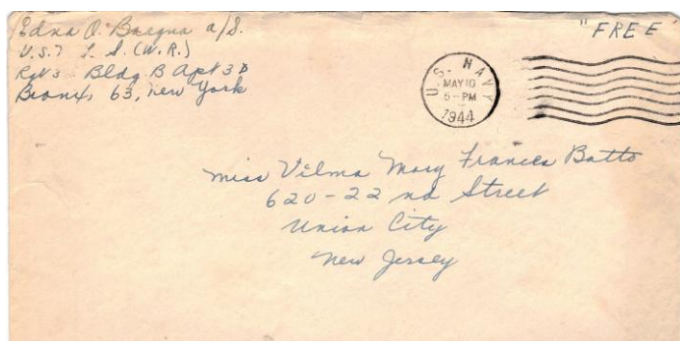 Edna O. Bregna a/S.
U.S.T. S. (W.R.)
Rgt 3 Bldg B Apt 3D
Bronx, 63, New York
"FREE"
U.S. NAVY
MAY 10
5-PM
1944
Miss Vilma Mary Frances Batto
620-22nd Street
Union City
New Jersey